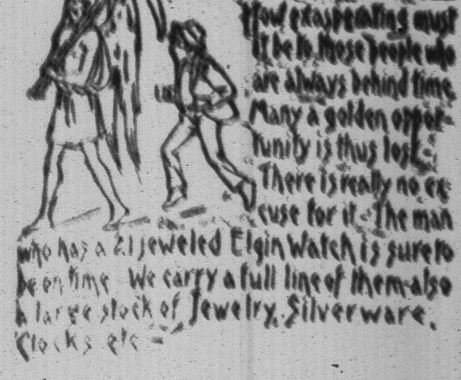 How exasperating must
it be to those people who
are always behind time.
Many a golden oppor-
tunity is thus lost.
There is really no ex-
cuse for it. The man
who has a 21 jeweled Elgin Watch is sure to
be on time We carry a full line of them-also
a large stock of Jewelry, Silverware,
Clocks etc -